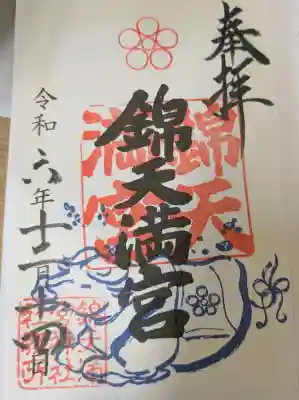 奉拝
錦天満宮
錦天
満宮
令和六年十二月十四日